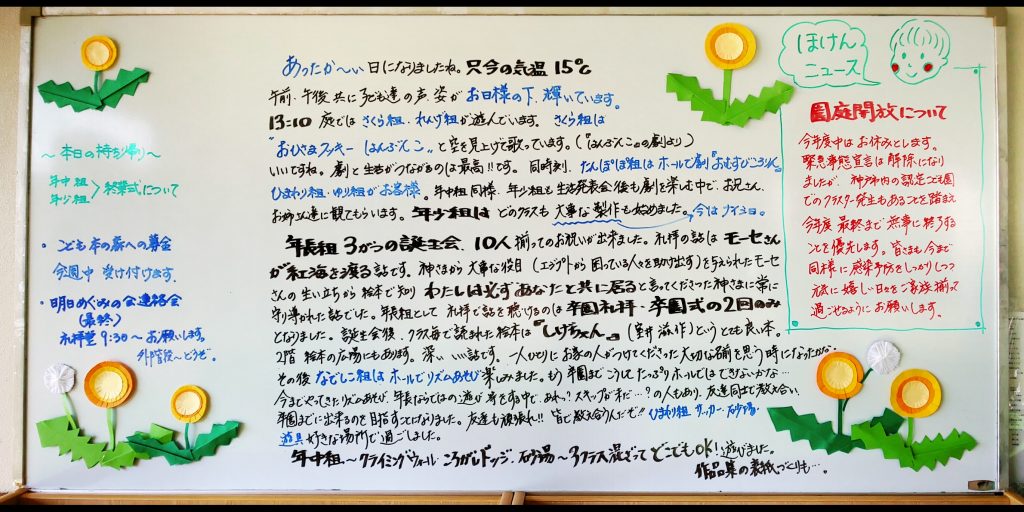 ～本日の持ち帰り～
年中組
年少組 〉終業式について
・こども本の森への募金
今週中 受け付けます。
・明日めぐみの会連絡会
(最終)
礼拝堂 9:30～ お願いします。
外階段～どうぞ。
あったか～い 日になりましたね。只今の気温 15℃
午前、午後 共に 子ども達の声、姿が お日様の下、輝いています。
13:10 庭では さくら組、れんげ組が 遊んでいます。 さくら組は
"おひさまクッキー はんぶんこ" と空を見上げて歌っています。(『はんぶんこ』の劇より)
いいですね。劇と生活がつながるのは最高!!です。同時刻、たんぽぽ組は ホールで劇『おむすびころりん』
ひまわり組・ゆり組が お客様。年中組同様、年少組も 生活発表会後も劇を楽しむ中で、お兄さん、
お姉さん達に観てもらいます。年少組は どのクラスも 大事な製作も始めました。 今はナイショ。
年長組 3がつの誕生会、10人 揃ってのお祝いが出来ました。礼拝の話は モーセさん
が紅海を渡る話です。神さまから 大事な役目 (エジプトから 困っている人々を助け出す)を与えられたモーセ
さんの生い立ちから 絵本で知り わたしは必ずあなたと共に居ると言ってくださった神さまに常に
守り導かれた話でした。年長組として 礼拝で話を聴けるのは 卒園礼拝・卒園式の2回のみ
となりました。誕生会後、クラス毎で読まれた絵本は『しげちゃん』(室井 滋作)という とても良い本。
2階 絵本の広場にもあります。深い いい話です。一人ひとりに お家の人がつけてくださった大切な名前を思う時になったかな…
その後 なでしこ組は ホールでリズムあそび 楽しみました。もう 卒園まで こうして たっぷり ホールではできないかな…
今までやってきたリズムあそび、年長ならではの遊び、等をする中で、あれっ? スキップが未だ…? の人もあり、友達同士で教え合い、
卒園までに出来るのを目指すことになりました。友達も頑張れ!! 皆で教え合うんだぞ!! ひまわり組 サッカー、砂場・
遊具 好きな場所で過ごしました。
年中組～クライミングウォール ころがしドッジ、砂場～3クラス混ざって どこでもOK! 遊びました。
作品集の表紙づくりも…。
ほけん
ニュース
園庭開放について
今年度中は お休みとします。
緊急事態宣言は 解除になり
ましたが、神戸市内の認定こども園
でのクラスター発生もあることを踏まえ
今年度 最終まで 無事に終了する
ことを優先します。皆さまも 今まで
同様に 感染予防をしっかりしつつ
元気に 嬉しい日々を ご家族 揃って
過ごせるように お願いします。